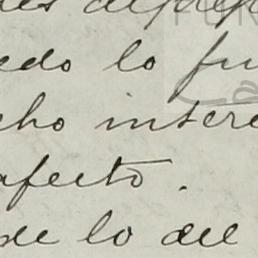 edo lo fu
cho intere
afecto.
de lo del